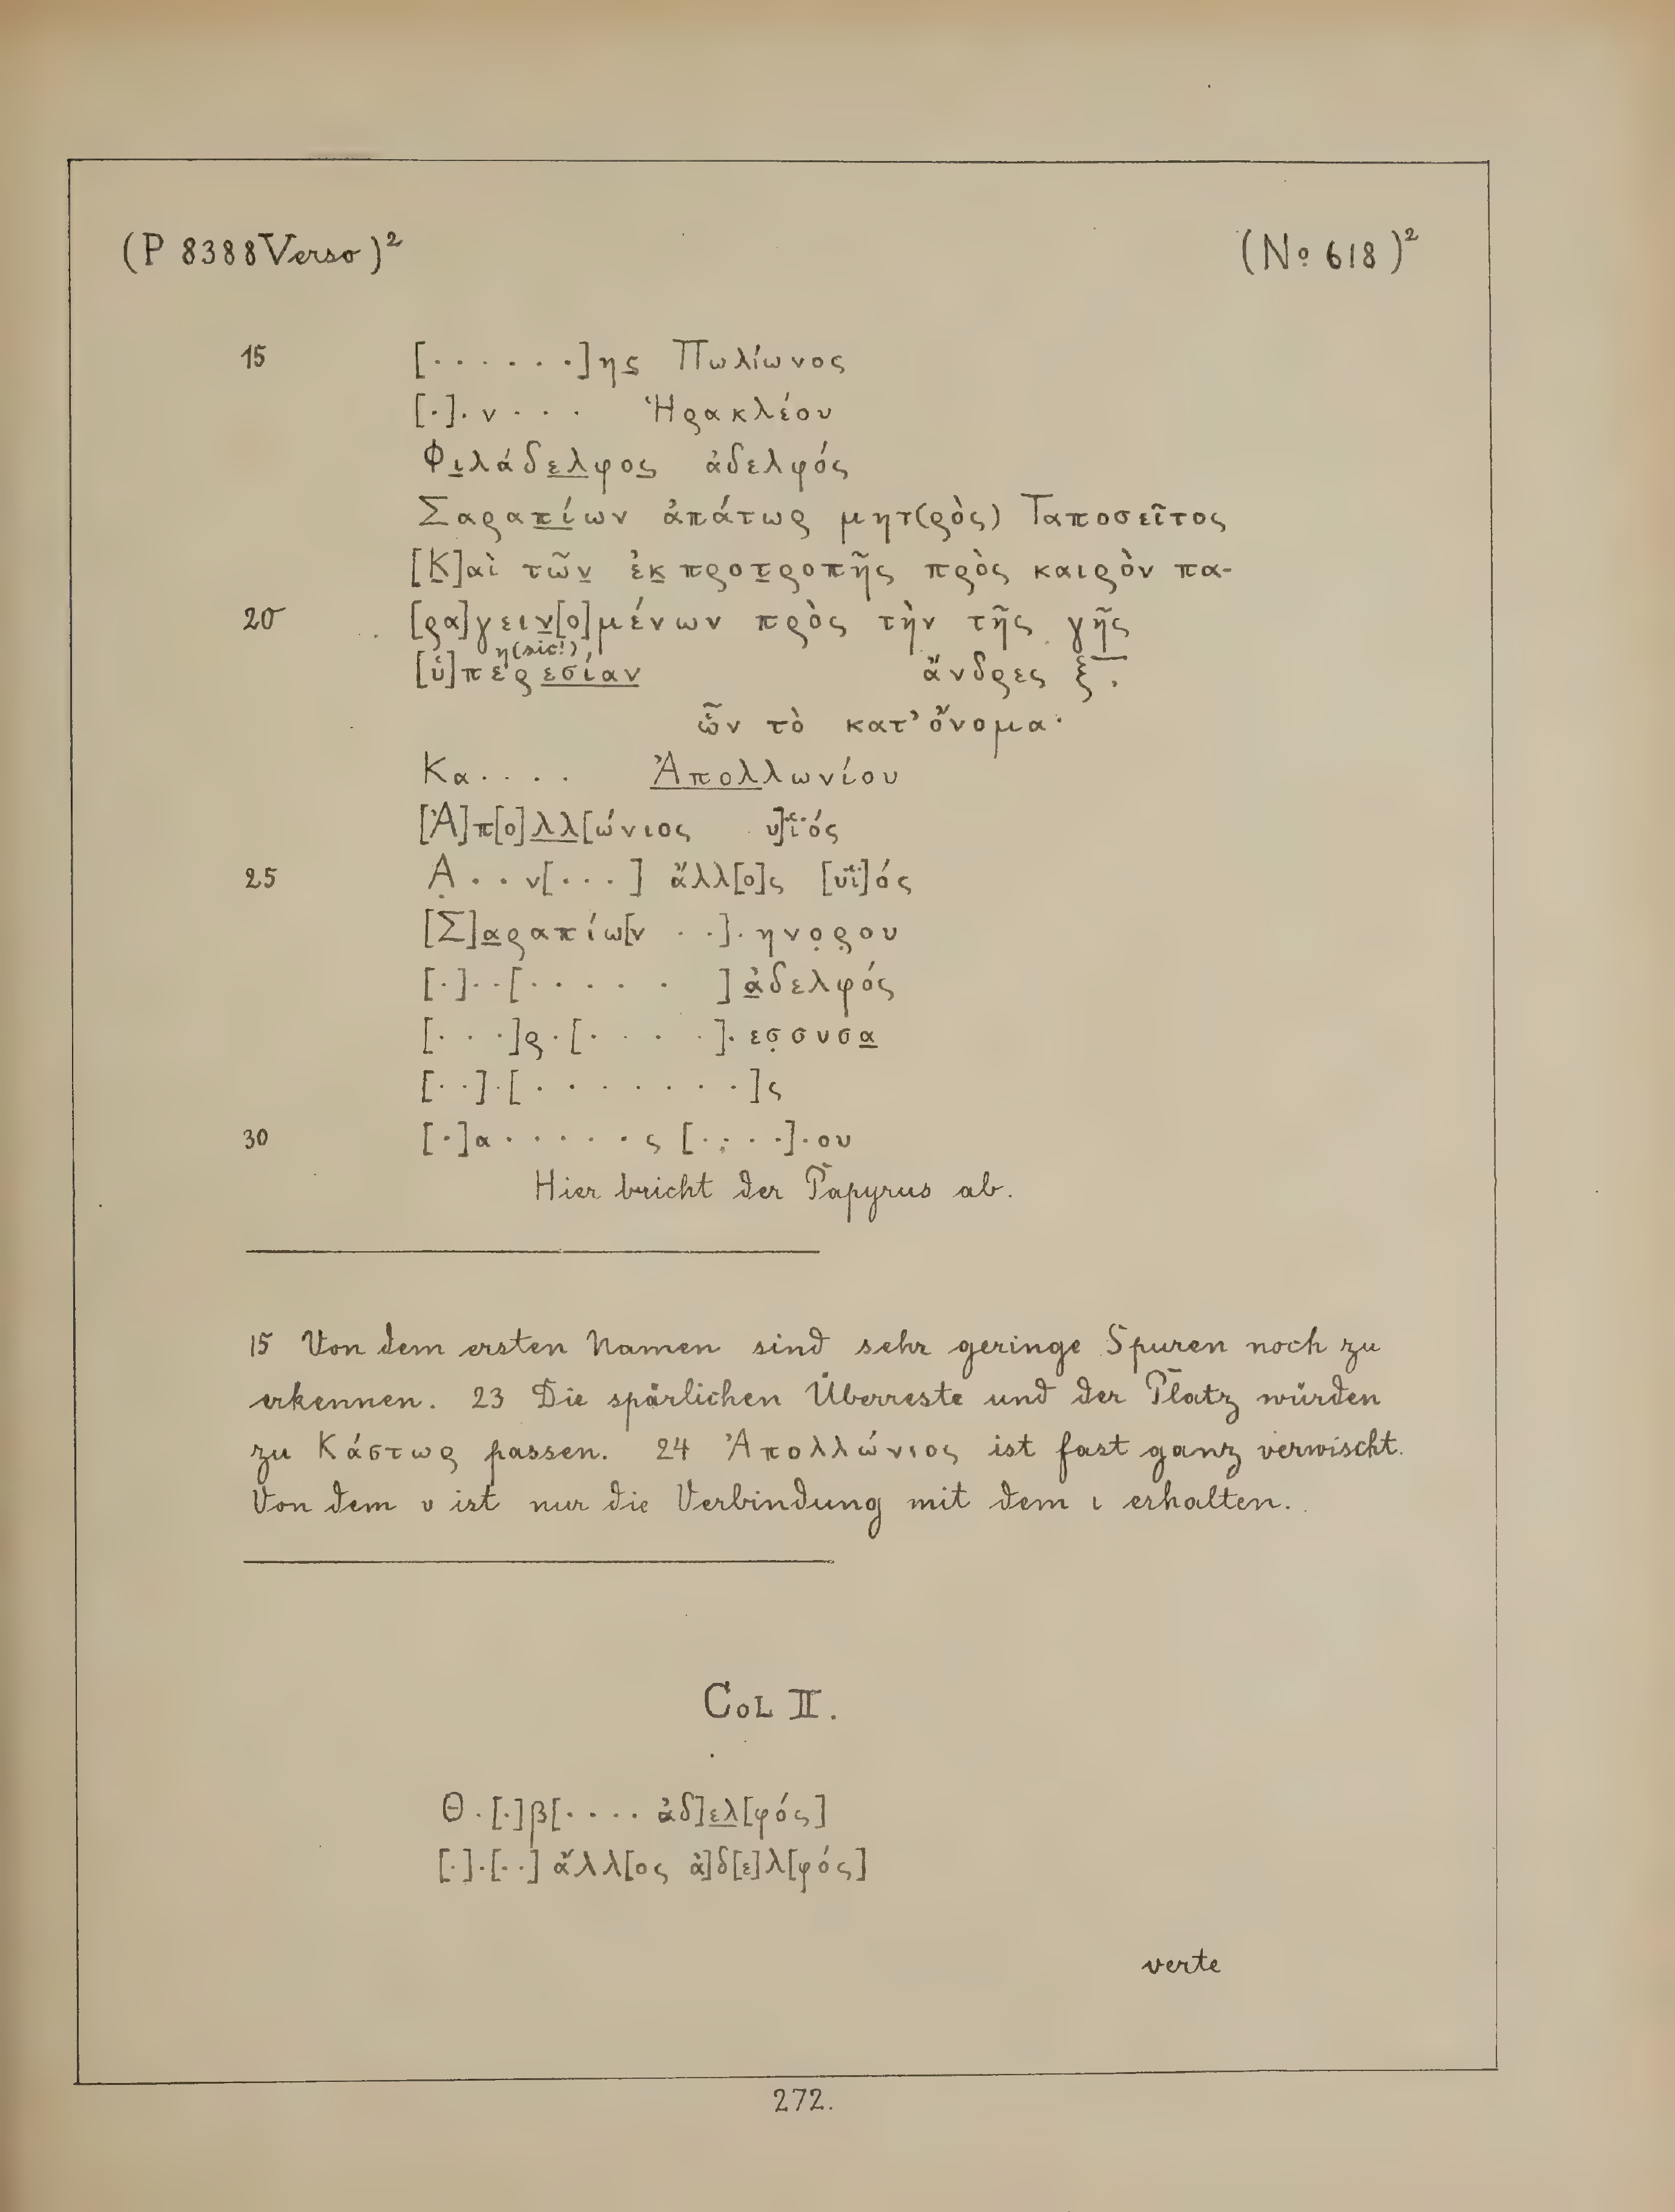 (P 8388 Verso)² (No 618)²
15 [· · · · · ·]ης Πωλίωνος
[·]· ν · · · Ἡρακλέου
Φιλάδελφος ἀδελφός
Σαραπίων ἀπάτωρ μητ(ρὸς) Ταποσεῖτος
[Κ]αὶ τῶν ἐκ προτροπῆς πρὸς καιρὸν πα-
20 [ρα]γειν[ο]μένων πρὸς τὴν τῆς γῆς
η(sic!)
[ὑ]περεσίαν ἄνδρες ξ̅.
ὧν τὸ κατ' ὄνομα·
Κα· · · · Ἀπολλωνίου
[Ἀ]π[ο]λλ[ώνιος υ]ἱός
25 Α · · ν[· · ·] ἄλλ[ο]ς [υἱ]ός
[Σ]αραπίω[ν · ·]· ηνορου
[·]· · [· · · · · ] ἀδελφός
[· · ·]ρ · [· · · ·]· εσσυσα
[· ·] · [· · · · · · ·]ς
30 [·]α · · · · · ς [· · · ·]· ου
Hier bricht der Papyrus ab.
15 Von dem ersten Namen sind sehr geringe Spuren noch zu
erkennen. 23 Die spärlichen Überreste und der Platz würden
zu Κάστωρ passen. 24 Ἀπολλώνιος ist fast ganz verwischt.
Von dem υ ist nur die Verbindung mit dem ι erhalten.
Col II.
Θ · [·]β[· · · · ἀδ]ελ[φός]
[·]·[· ·] ἄλλ[ος ἀ]δ[ε]λ[φός]
verte
272.